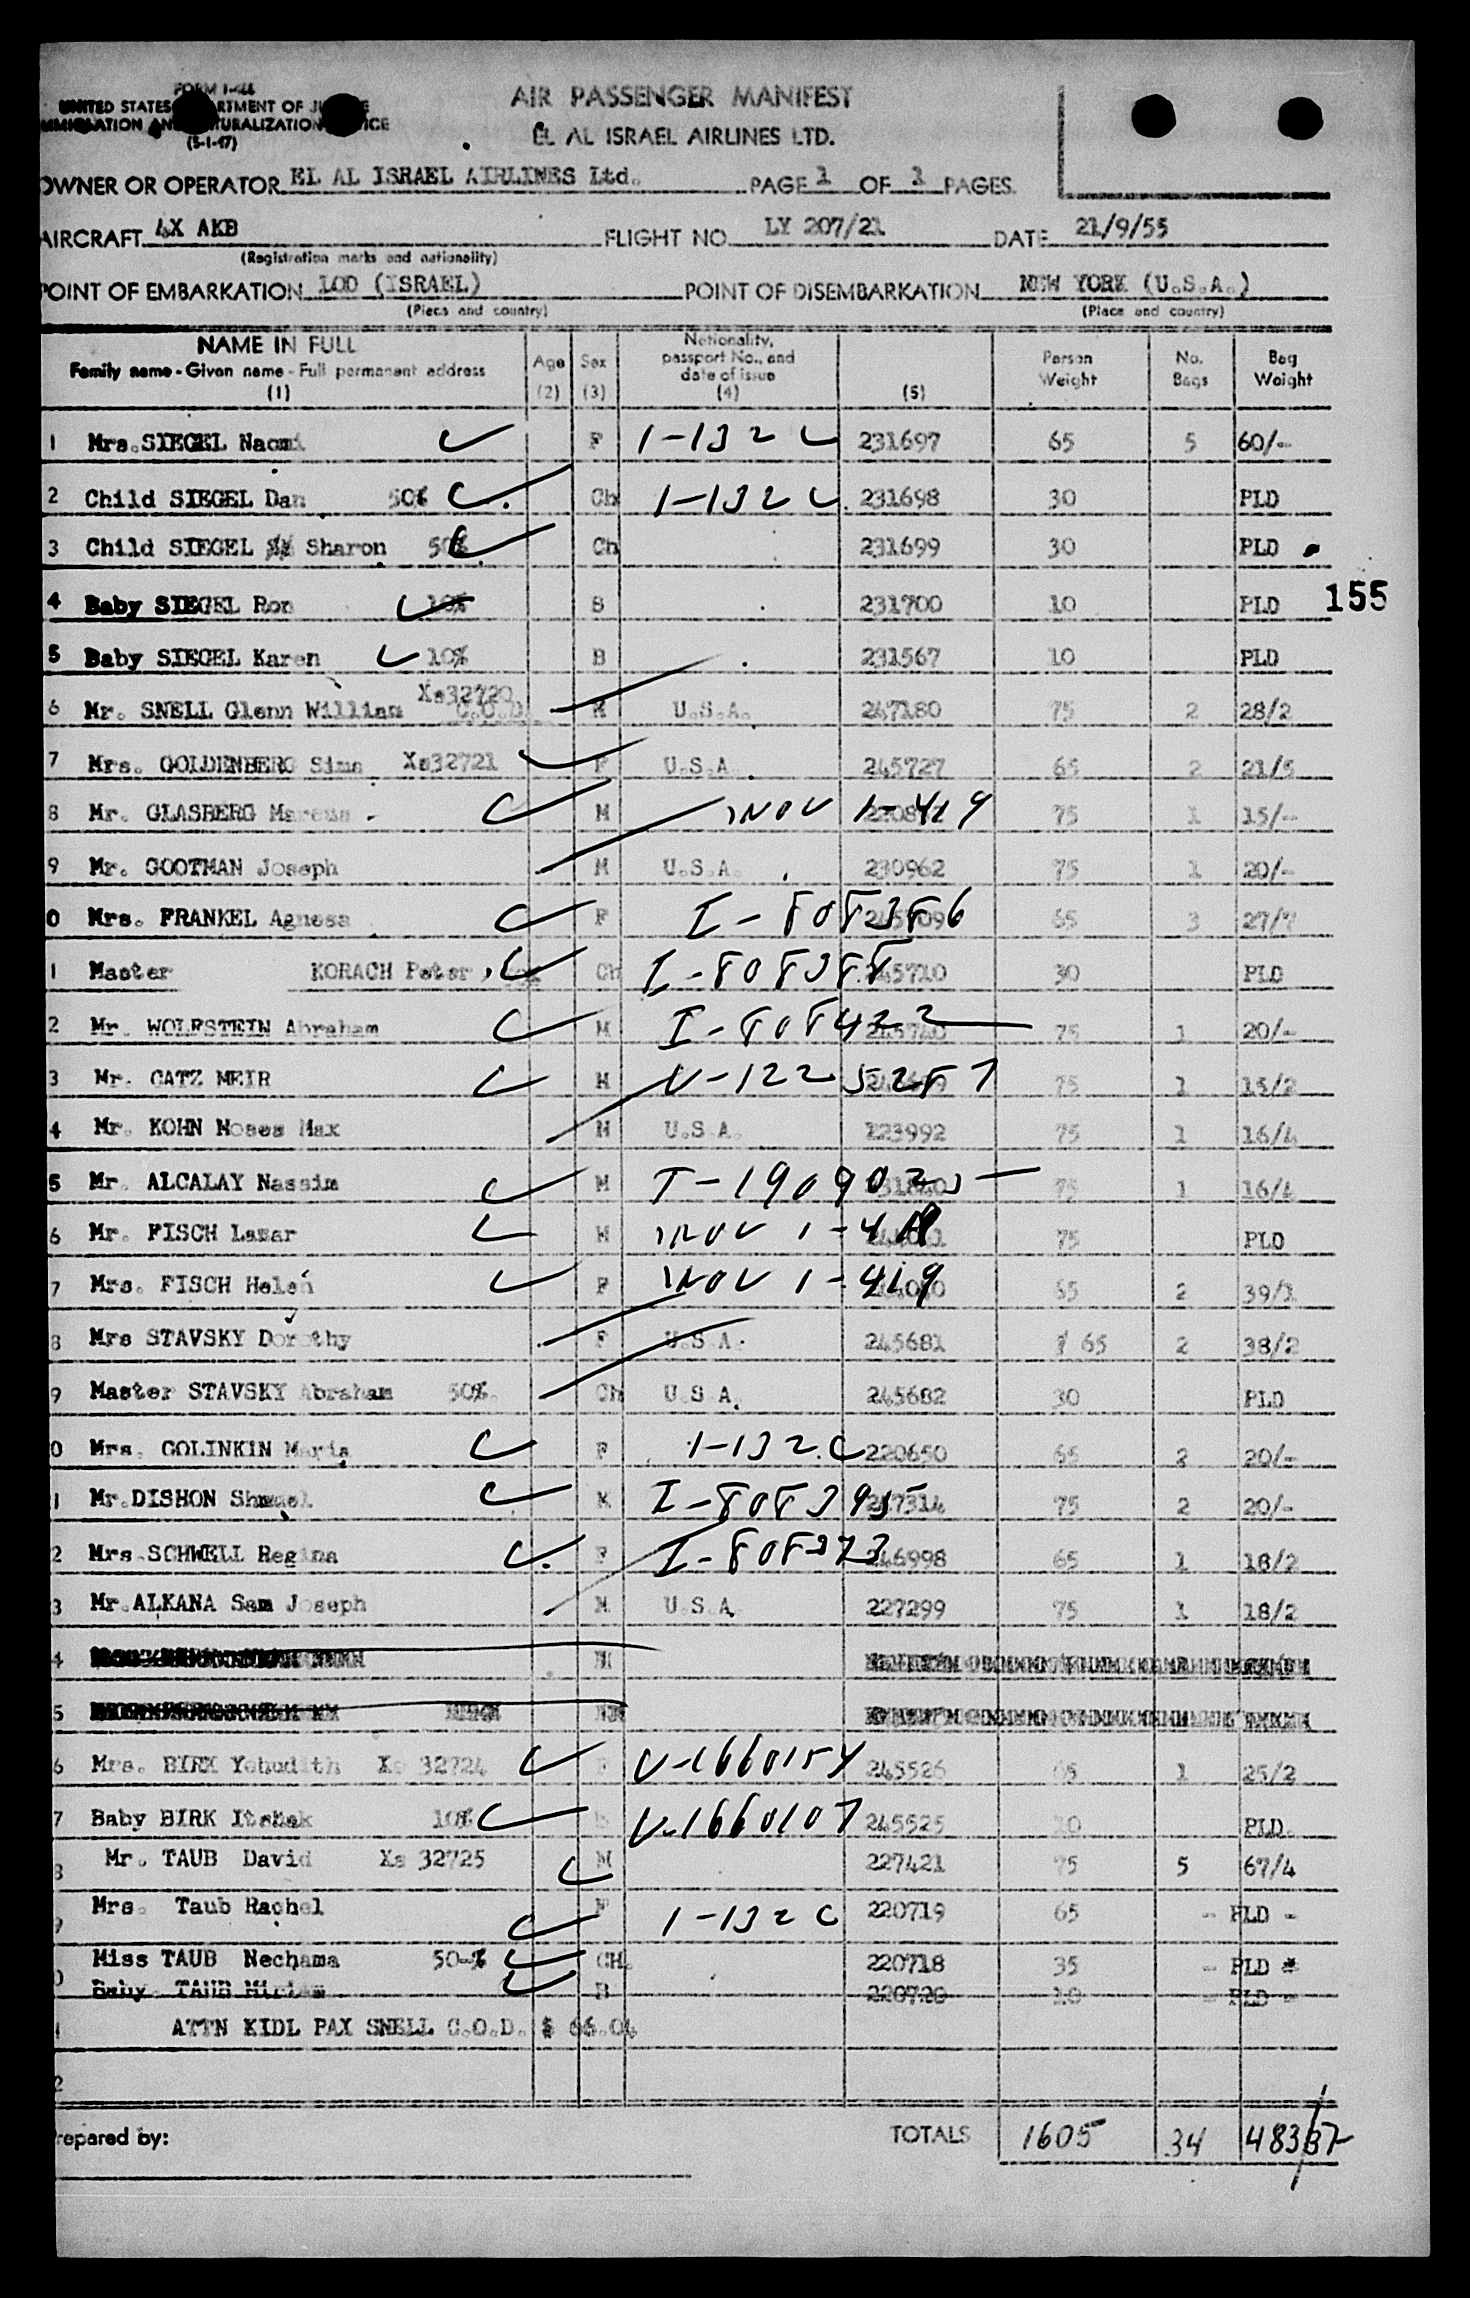 FORM I-466
UNITED STATES DEPARTMENT OF JUSTICE
IMMIGRATION AND NATURALIZATION SERVICE
(5-1-47)
AIR PASSENGER MANIFEST
EL AL ISRAEL AIRLINES LTD.
OWNER OR OPERATOR EL AL ISRAEL AIRLINES Ltd. PAGE 1 OF 1 PAGES
AIRCRAFT 4X AKB FLIGHT NO. LY 207/21 DATE 21/9/55
(Registration marks and nationality)
POINT OF EMBARKATION LOD (ISRAEL) POINT OF DISEMBARKATION NEW YORK (U.S.A.)
(Place and country) (Place and country)
NAME IN FULL Family name - Given name - Full permanent address (1) Age (2) Sex (3) Nationality, passport No., and date of issue (4) (5) Person Weight No. Bags Bag Weight
1 Mrs. SIEGEL Naomi F 1-132 C 231697 65 5 60/-
2 Child SIEGEL Dan 50% Ch 1-132 C 231698 30 PLD
3 Child SIEGEL Sharon 50% Ch 231699 30 PLD
4 Baby SIEGEL Ron 10% B 231700 10 PLD 155
5 Baby SIEGEL Karen 10% B 231567 10 PLD
6 Mr. SNELL Glenn William Xs32720 C.O.D. M U.S.A. 247180 75 2 28/2
7 Mrs. GOLDENBERG Sima Xs32721 F U.S.A. 245727 65 2 21/5
8 Mr. GLASBERG Marcus M INOV 1-419 75 1 15/-
9 Mr. GOOTMAN Joseph M U.S.A. 230962 75 1 20/-
0 Mrs. FRANKEL Agnesa F I-808386 65 3 27/7
1 Master KORACH Peter CH I-808388 245710 30 PLD
2 Mr. WOLFSTEIN Abraham M I-808422 75 1 20/-
3 Mr. CATZ MEIR M V-1225287 75 1 15/2
4 Mr. KOHN Moses Max M U.S.A. 123992 75 1 16/4
5 Mr. ALCALAY Nassim M T-1909023 75 1 16/4
6 Mr. FISCH Lazar M INOV 1-419 75 PLD
7 Mrs. FISCH Helen F INOV 1-419 65 2 39/1
8 Mrs STAVSKY Dorothy F U.S.A. 245681 65 2 38/2
9 Master STAVSKY Abraham 50% Ch U.S.A. 245682 30 PLD
0 Mrs. GOLINKIN Maria F 1-132 C 220650 65 2 20/-
1 Mr. DISHON Shmuel M I-808395 247314 75 2 20/-
2 Mrs. SCHWELL Regina F I-808373 246998 65 1 18/2
3 Mr. ALKANA Sam Joseph M U.S.A. 227299 75 1 18/2
4 M
5
6 Mrs. BIRK Yehudith Xs 32724 F V-1660154 245526 65 1 25/2
7 Baby BIRK Itshak 10% B V-1660107 245525 10 PLD.
8 Mr. TAUB David Xs 32725 M 227421 75 5 67/4
9 Mrs. Taub Rachel F 1-132 C 220719 65 - PLD -
0 Miss TAUB Nechama 50-% CH. 220718 35 - PLD *
Baby TAUB Miriam B 220720 10 - PLD -
1 ATTN KIDL PAX SNELL C.O.D. $ 66.04
2
Prepared by: TOTALS 1605 34 483/37